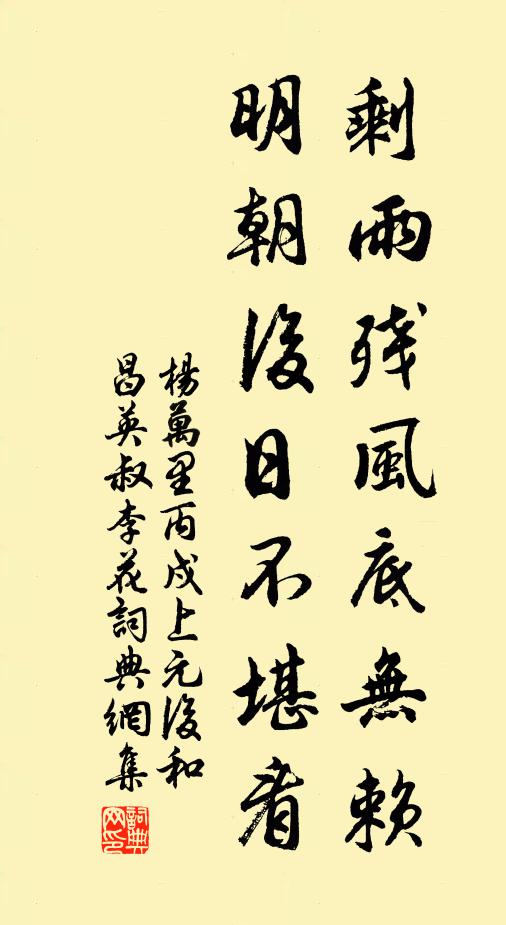 剩雨残風底無賴
明朝後日不堪看
楊萬里丙戌上元後和
昌英叔李花詞典網集
詞典網印